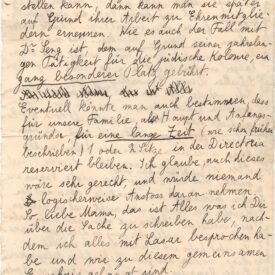 stollen kann, dann kann man sie später
auf Grund ihrer Arbeit zu Ehrenmitglie-
dern ernennen. Wie es auch der Fall mit
Dr Seng ist, dem auf Grund seiner jahrelan-
gen Tätigkeit für die jüdische Kolonie, ein
gang besonderer Platz gebührt.
Eventuell könnte man auch bestimmen, dass
für unsere Familie, als Haupt und Anfangs-
gründer für eine lange Zeit (wie schon früher
beschrieben) 1 oder 2 Sitze in der Directoria
reserviert bleiben. Ich glaube, auch dieses
wäre sehr gerecht, und würde niemand
logischerweise Anstoss daran nehmen.
So liebe Mama, das ist Alles was ich Dir
über die Sache zu schreiben habe, nach-
dem ich alles mit Lasar besprochen ha-
be und wir zu diesem gemeinsamen
Ergebnis gelangt sind.